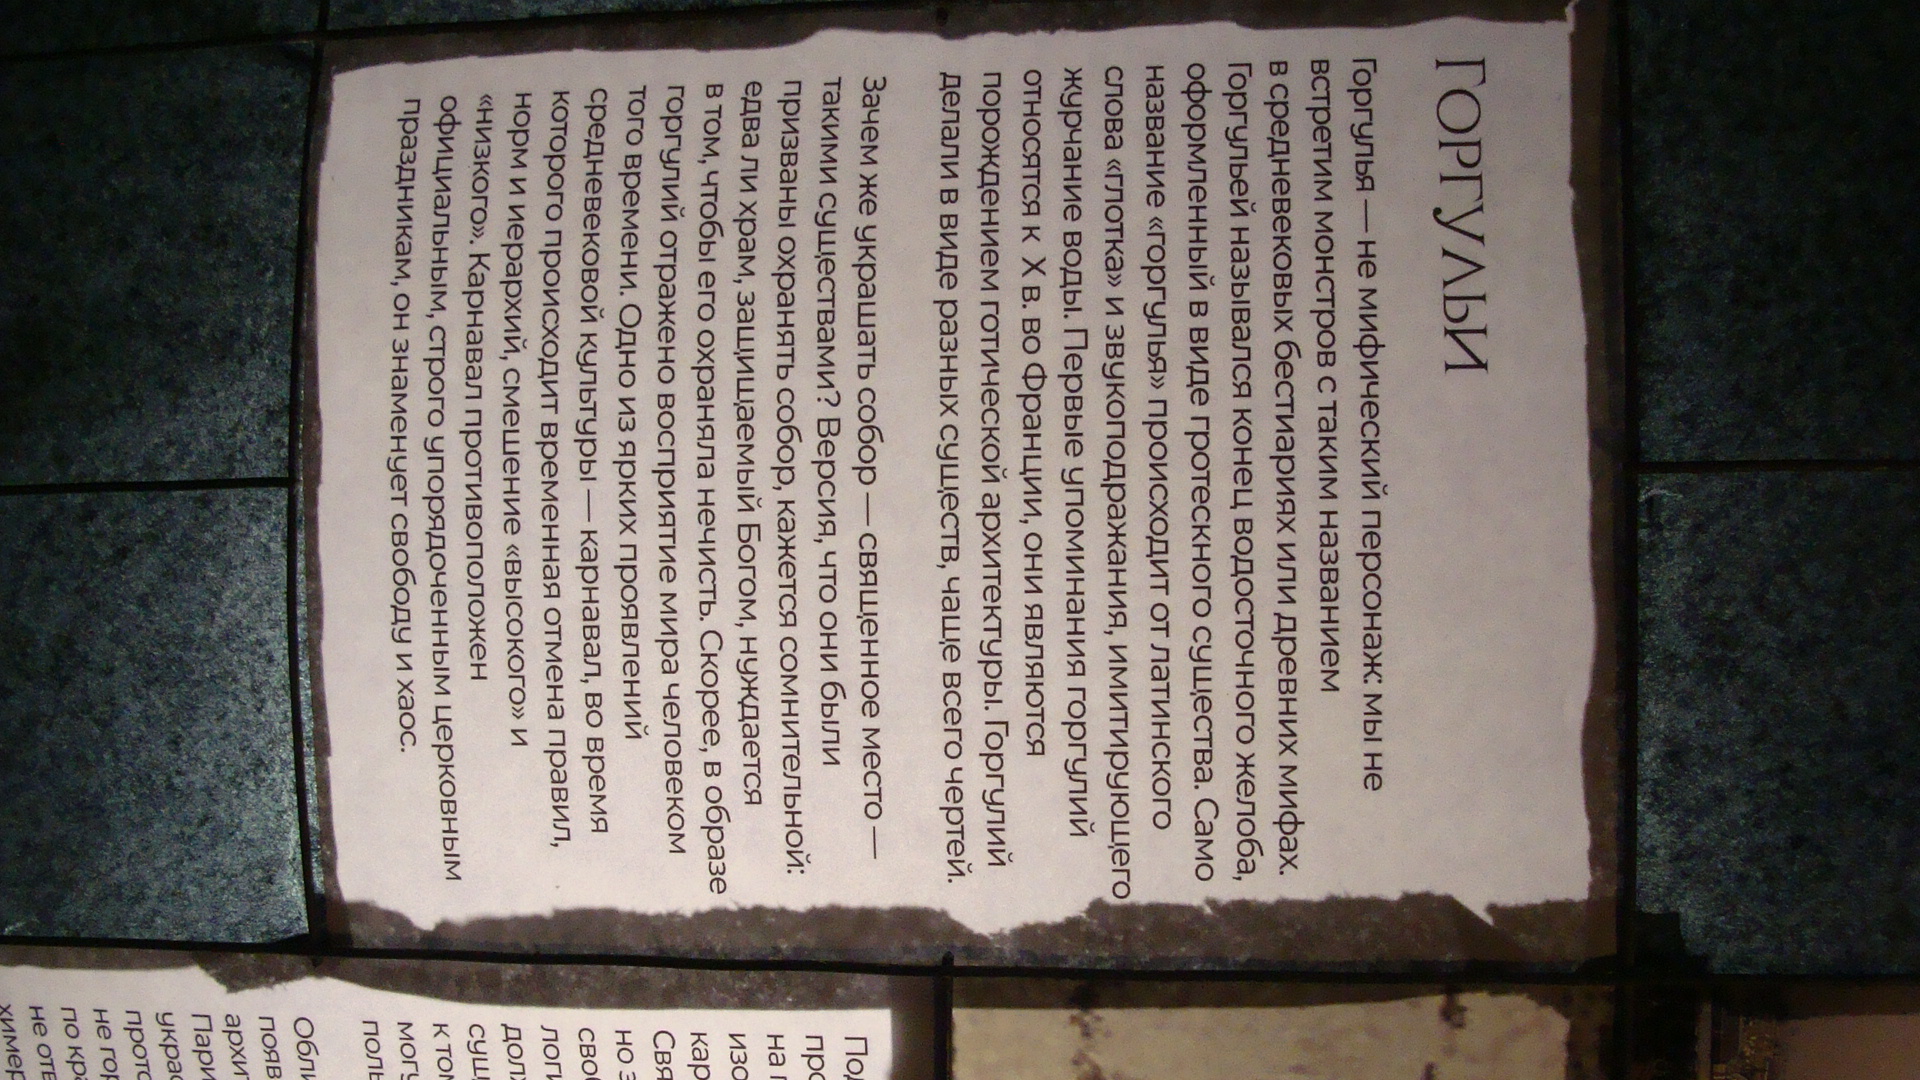 ГОРГУЛЬИ
Горгулья — не мифический персонаж: мы не
встретим монстров с таким названием
в средневековых бестиариях или древних мифах.
Горгульей назывался конец водосточного желоба,
оформленный в виде гротескного существа. Само
название «горгулья» происходит от латинского
слова «глотка» и звукоподражания, имитирующего
журчание воды. Первые упоминания горгулий
относятся к X в. во Франции, они являются
порождением готической архитектуры. Горгулий
делали в виде разных существ, чаще всего чертей.
Зачем же украшать собор — священное место —
такими существами? Версия, что они были
призваны охранять собор, кажется сомнительной:
едва ли храм, защищаемый Богом, нуждается
в том, чтобы его охраняла нечисть. Скорее, в образе
горгулий отражено восприятие мира человеком
того времени. Одно из ярких проявлений
средневековой культуры — карнавал, во время
которого происходит временная отмена правил,
норм и иерархий, смешение «высокого» и
«низкого». Карнавал противоположен
официальным, строго упорядоченным церковным
праздникам, он знаменует свободу и хаос.
на
но
к том
не
по
не